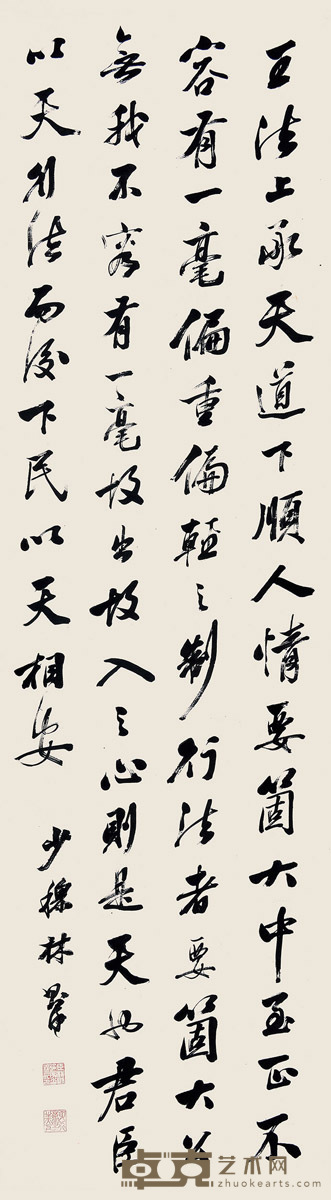 王法上承天道下順人情要箇大中至正不
容有一毫偏重偏輕之制行法者要箇大公
無我不容有一毫故出故入之心則是天也君臣
以天行法而後下民以天相安
少穆林
卓克艺术网
zhuokearts.com